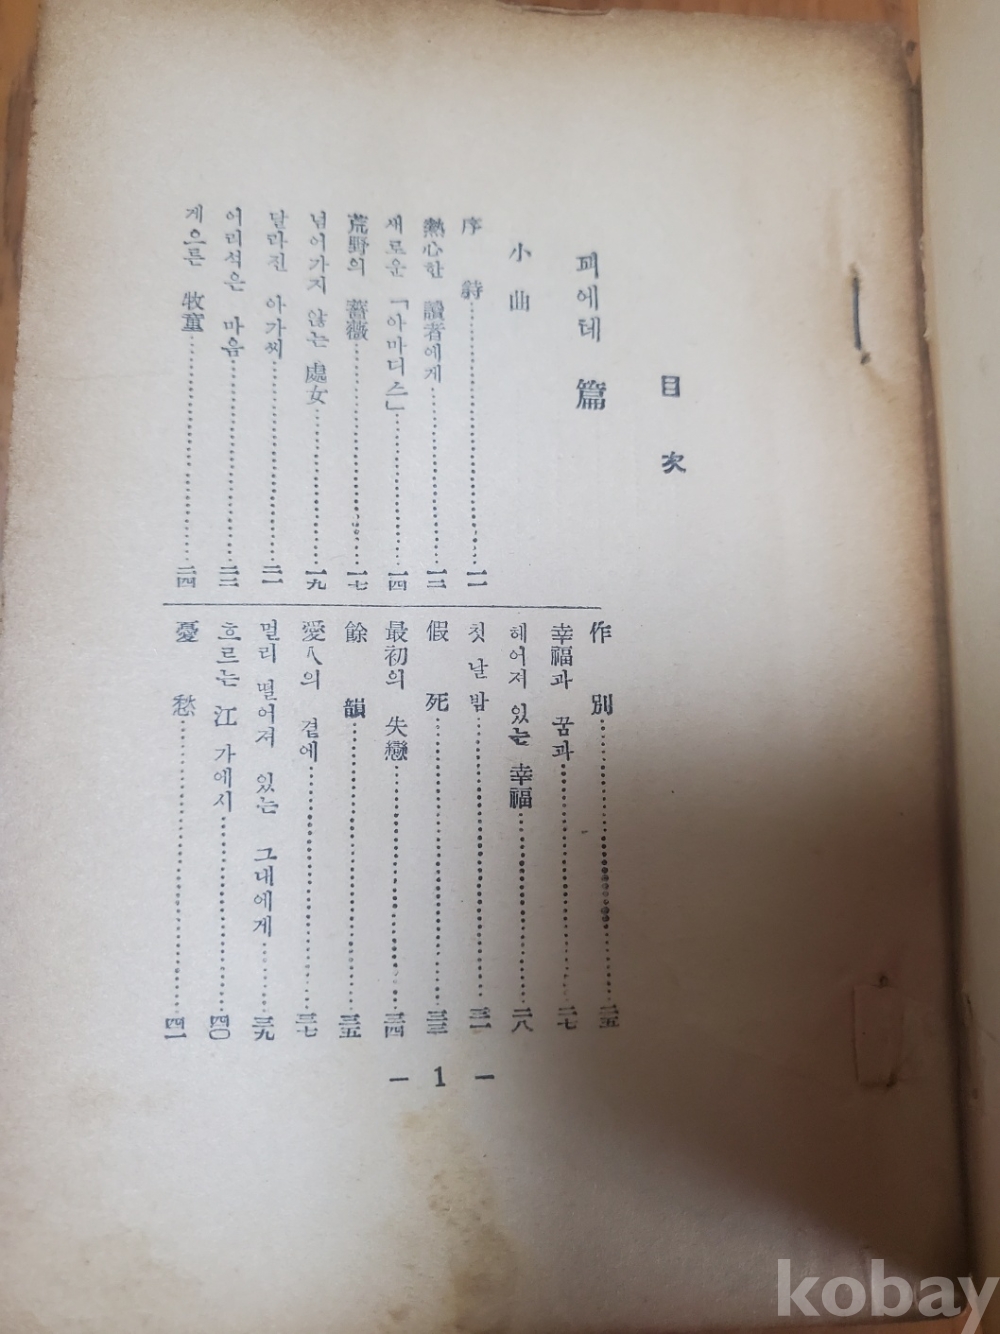 目次
괴에테 篇
小曲
序詩……………一一
熱心한 讀者에게……………一二
새로운「아마디스」……………一四
荒野의 薔薇……………一七
넘어가지 않는 處女……………一九
달라진 아가씨……………二一
어리석은 마음……………二三
게으른 牧童……………二四
作別……………二五
幸福과 꿈과……………二七
헤어져 있는 幸福……………二八
첫날밤……………三一
假死……………三三
最初의 失戀……………三四
餘韻……………三五
愛人의 곁에……………三七
멀리 떨어져 있는 그대에게……………三九
흐르는 江 가에서……………四〇
憂愁……………四一
— 1 —
kobay